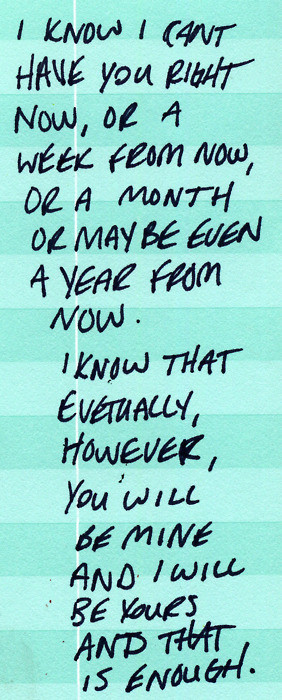 I KNOW I CANT
HAVE YOU RIGHT
NOW, OR A
WEEK FROM NOW,
OR A MONTH
OR MAYBE EVEN
A YEAR FROM
NOW.
I KNOW THAT
EVETUALLY,
HOWEVER,
YOU WILL
BE MINE
AND I WILL
BE YOURS
AND THAT
IS ENOUGH.